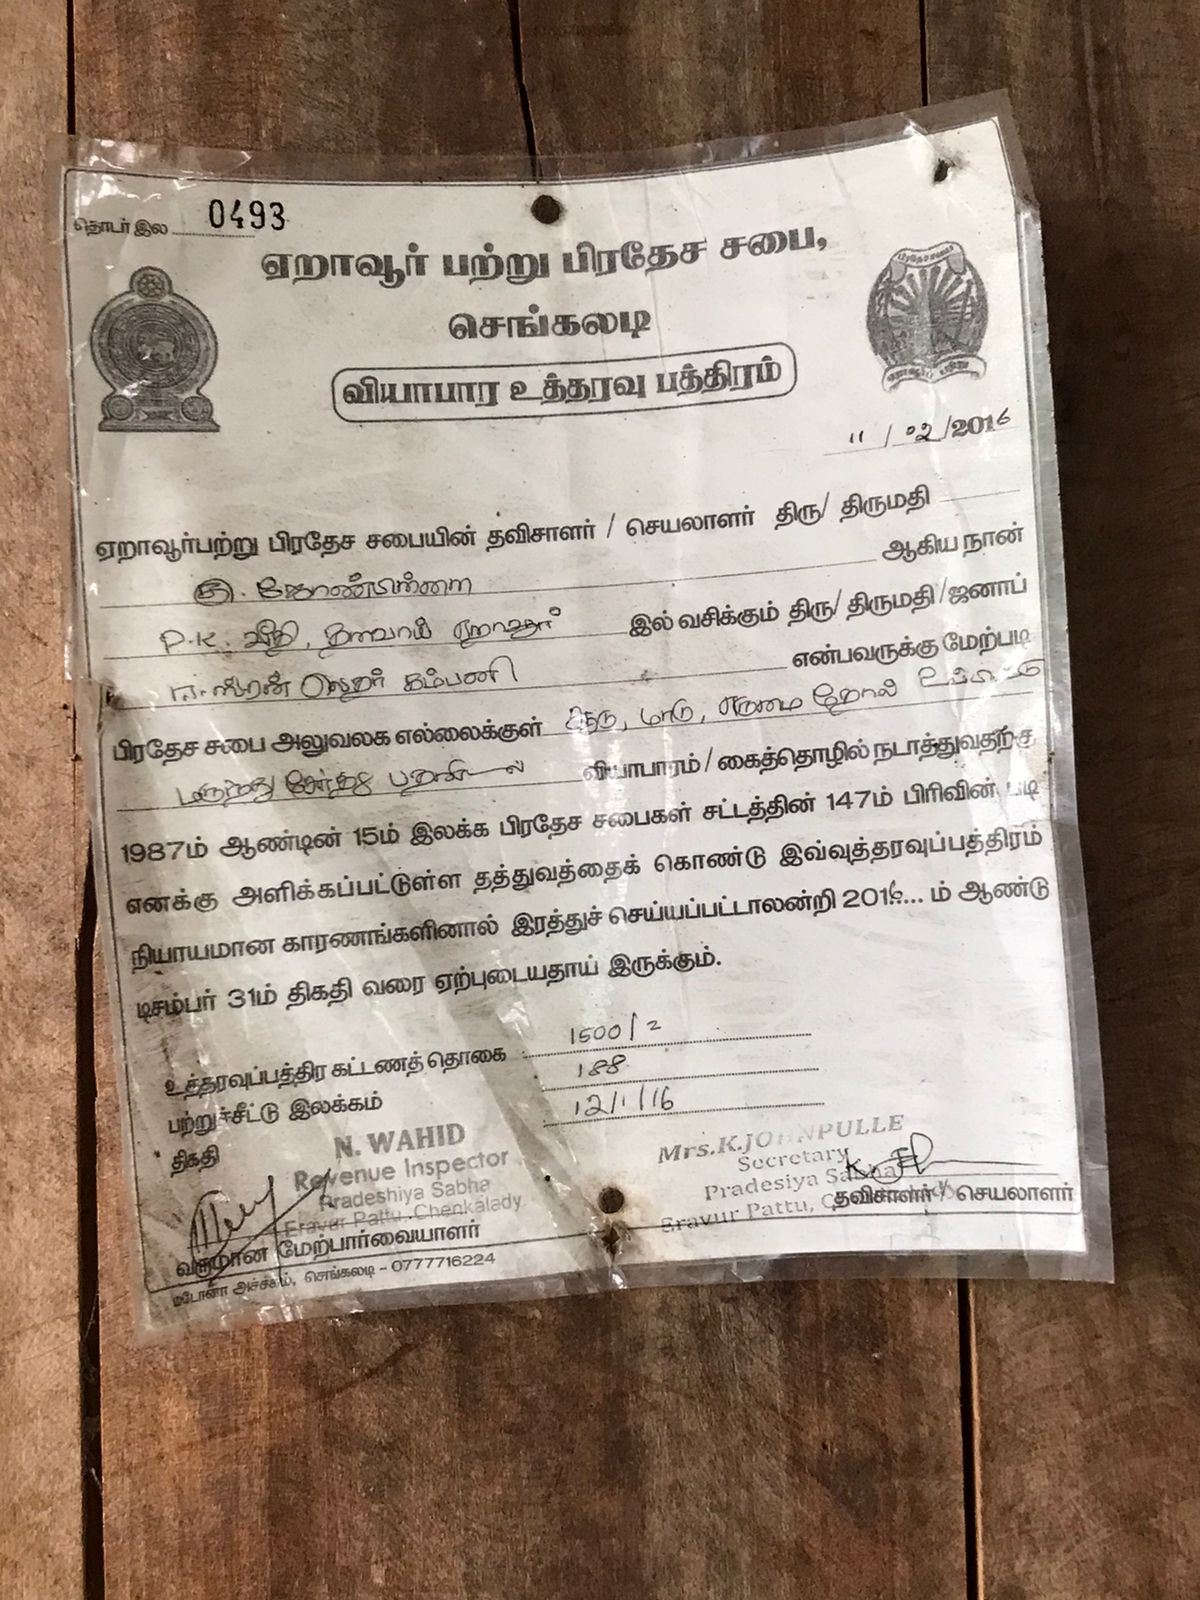 தொடர் இல 0493
ஏறாவூர் பற்று பிரதேச சபை,
செங்கலடி
வியாபார உத்தரவு பத்திரம்
11/02/2016
ஏறாவூர்பற்று பிரதேச சபையின் தவிசாளர் / செயலாளர் திரு/ திருமதி
ஆகிய நான்
P.K. வீதி, தளவாய் ஏறாவூர் இல் வசிக்கும் திரு/ திருமதி/ஜனாப்
லெதர் கம்பனி என்பவருக்கு மேற்படி
பிரதேச சபை அலுவலக எல்லைக்குள் ஆடு, மாடு, எருமை தோல்
மருந்து சேர்த்து வியாபாரம்/கைத்தொழில் நடாத்துவதற்கு
1987ம் ஆண்டின் 15ம் இலக்க பிரதேச சபைகள் சட்டத்தின் 147ம் பிரிவின் படி
எனக்கு அளிக்கப்பட்டுள்ள தத்துவத்தைக் கொண்டு இவ்வுத்தரவுப்பத்திரம்
நியாயமான காரணங்களினால் இரத்துச் செய்யப்பட்டாலன்றி 2016... ம் ஆண்டு
டிசம்பர் 31ம் திகதி வரை ஏற்புடையதாய் இருக்கும்.
உத்தரவுப்பத்திர கட்டணத் தொகை : 1500/=
பற்றுச்சீட்டு இலக்கம் 188
திகதி 12/1/16
N. WAHID
Revenue Inspector
Pradeshiya Sabha
Eravur Pattu, Chenkalady
வருமான மேற்பார்வையாளர்
Mrs.K.JOHNPULLE
Secretary
Pradesiya Sabha
Eravur Pattu,
தவிசாளர் / செயலாளர்
மடோனா அச்சகம், செங்கலடி - 0777716224